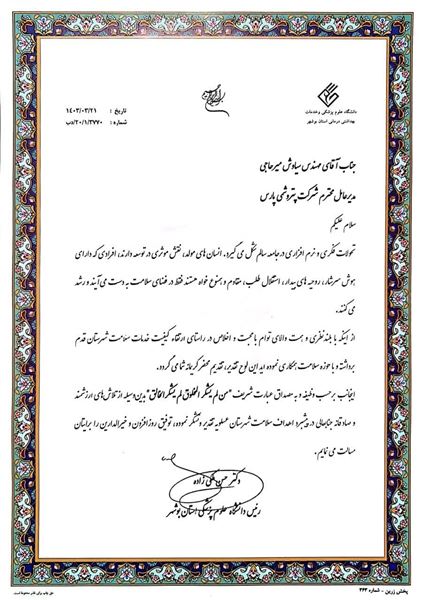 دانشگاه علوم پزشکی و خدمات
بهداشتی درمانی استان بوشهر
تاریخ : ۱۴۰۳/۰۳/۲۱
شماره : ۲۰/۱/۳۷۷۰/دب
جناب آقای مهندس سیاوش میرحاجی
مدیرعامل محترم شرکت پتروشیمی پارس
سلام علیکم
تحولات فکری و نرم افزاری در جامعه سالم شکل می گیرد. انسان های مولد، نقش موثری در توسعه دارند، افرادی که دارای
هوش سرشار، روحیه های بیدار، استقلال طلب، مقاوم و همنوع خواه هستند فقط در فضای سلامت به دست می آیند و رشد
می کنند.
از اینکه با بلندنظری و همت والای توام با محبت و اخلاص در راستای ارتقاء کیفیت خدمات سلامت شهرستان قدم
برداشته و با حوزه سلامت همکاری نموده اید این لوح تقدیر، تقدیم محضر کریمانه شما می گردد.
اینجانب بر حسب وظیفه و به مصداق عبارت شریف "من لم یشکر المخلوق لم یشکر الخالق" بدین وسیله از تلاش های ارزشمند
و صادقانه جنابعالی در پیشبرد اهداف سلامت شهرستان عسلویه تقدیر و تشکر نموده، توفیق روزافزون و خیرالدارین را برایتان
مسالت می نمایم.
دکتر حسن ملکی زاده
رئیس دانشگاه علوم پزشکی استان بوشهر
پخش زرین - شماره ۳۶۳
حق چاپ برای ناشر محفوظ است.